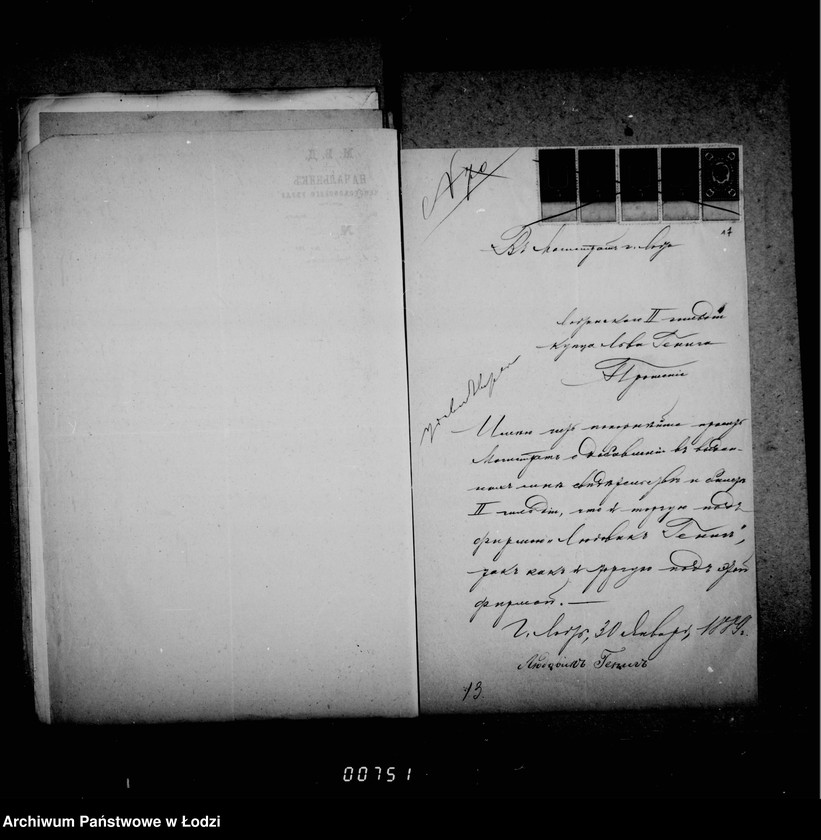 М. В. Д.
НАЧАЛЬНИКЪ
№
Въ Магистратъ г. Лодзи
Лодзинскаго II гильдіи
купца Льва Генига
Прошеніе
Имѣю честь покорнѣйше просить
Магистратъ о добавленіи въ выдан-
номъ мнѣ свидѣтельствѣ и билетѣ
II гильдіи, что я торгую подъ
фирмою „Людвикъ Генигъ“,
такъ какъ я торгую подъ этой
фирмой. —
Г. Лодзь, 30 Января, 1889 г.
Людвикъ Генигъ
13
00751
Archiwum Państwowe w Łodzi